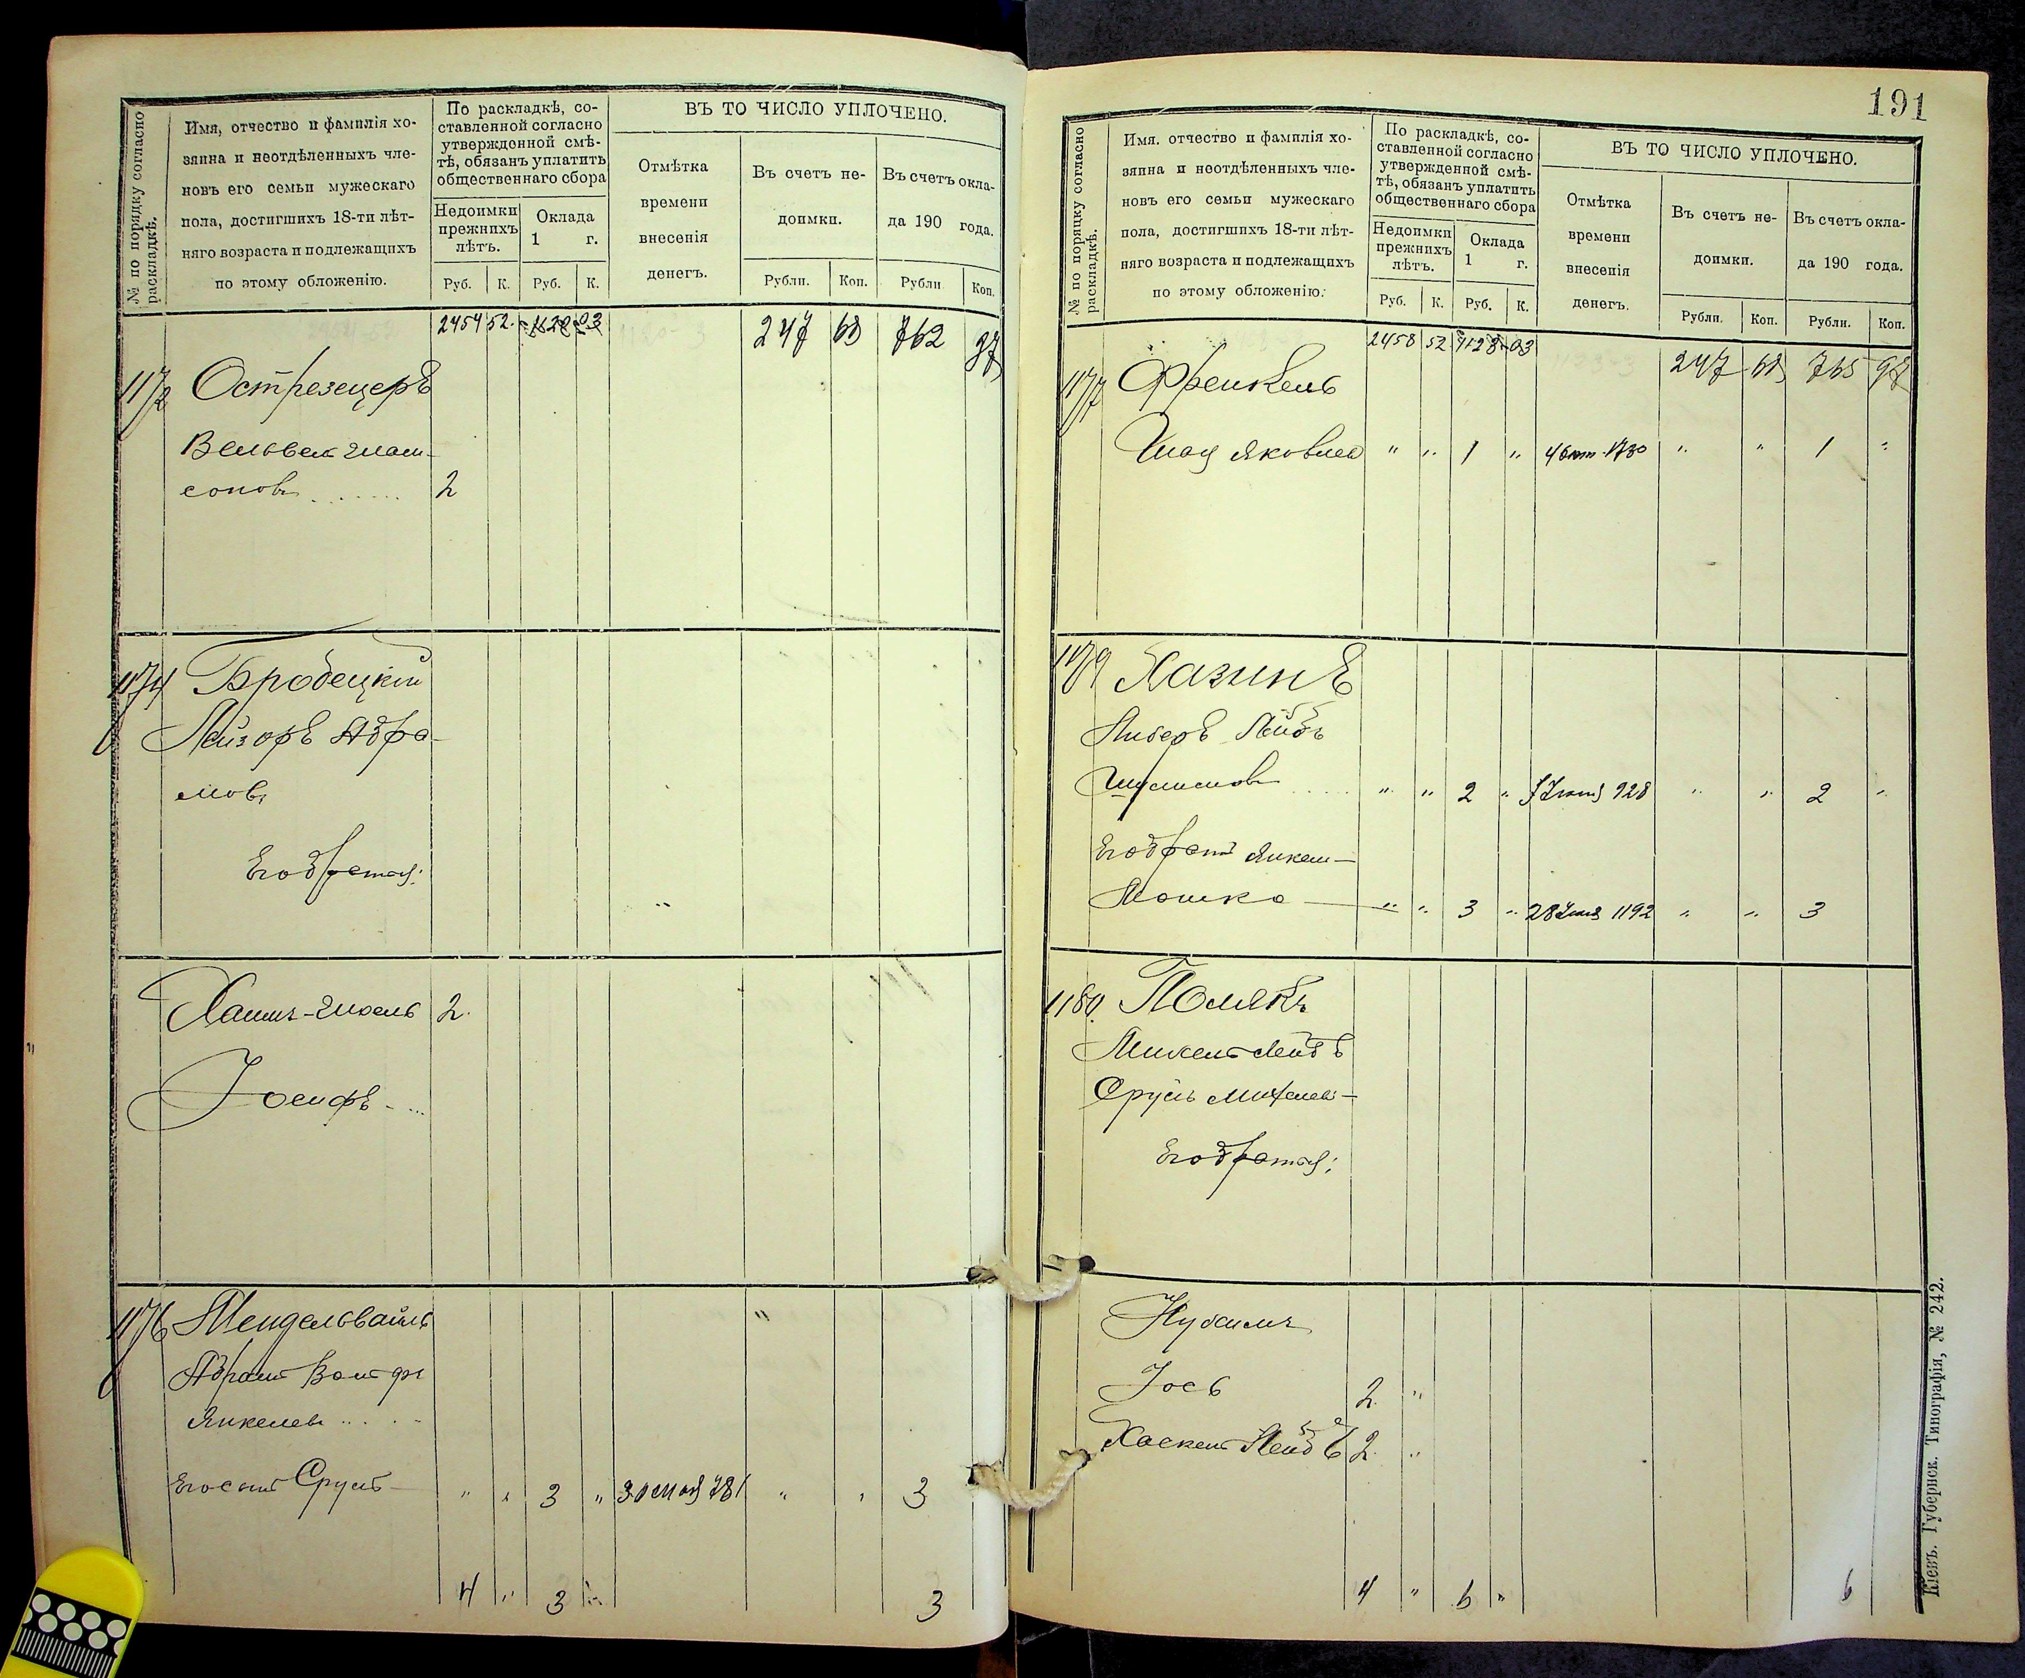 № по порядку согласно раскладкѣ.
Имя, отчество и фамилія хо-
зяина и неотдѣленныхъ чле-
новъ его семьи мужескаго
пола, достигшихъ 18-ти лѣт-
няго возраста и подлежащихъ
по этому обложенію.
По раскладкѣ, со-
ставленной согласно
утвержденной смѣ-
тѣ, обязанъ уплатить
общественнаго сбора
Недоимки
прежнихъ
лѣтъ.
Оклада
1 г.
Руб. К. Руб. К.
ВЪ ТО ЧИСЛО УПЛОЧЕНО.
Отмѣтка
времени
внесенія
денегъ.
Въ счетъ не-
доимки.
Въ счетъ окла-
да 190 года.
Рубли. Коп. Рубли Коп.
2454 52 1120 03 247 68 762 97
1172 Острезецеръ
Вельвел
соновъ 2
1174 Бробецкій
Лейзоръ Абра-
мовъ
Его братья:
Хаимъ-Иосель 2
Іосифъ
1176 Мендельвайль
Абрамъ Вольфъ
Янкелевъ
Его сынъ Сруль " " 3 " 30 мая 781 " " 3
4 " 3 " 3
191
№ по порядку согласно раскладкѣ.
Имя. отчество и фамилія хо-
зяина и неотдѣленныхъ чле-
новъ его семьи мужескаго
пола, достигшихъ 18-ти лѣт-
няго возраста и подлежащихъ
по этому обложенію.
По раскладкѣ, со-
ставленной согласно
утвержденной смѣ-
тѣ, обязанъ уплатить
общественнаго сбора
Недоимки
прежнихъ
лѣтъ.
Оклада
1 г.
Руб. К. Руб. К.
ВЪ ТО ЧИСЛО УПЛОЧЕНО.
Отмѣтка
времени
внесенія
денегъ.
Въ счетъ не-
доимки.
Въ счетъ окла-
да 190 года.
Рубли. Коп. Рубли. Коп.
2458 52 1123 03 247 68 765 97
1177 Френкель
Яковлев " " 1 " 4 окт. 1730 " " 1 "
1179 Хазинъ
Либеръ Лейбъ
Шулимовъ " " 2 " 928 " " 2 "
Его братъ Янкель-
Мошко " " 3 " 28 1192 " " 3
1180 Полякъ
Михель Лейбъ
Сруль Михелев-
Его братья:
Нухимъ
Іось 2 "
Хаскель Лейбъ 2 "
4 " 6 " 6
Кіевъ. Губернск. Типографія, № 242.